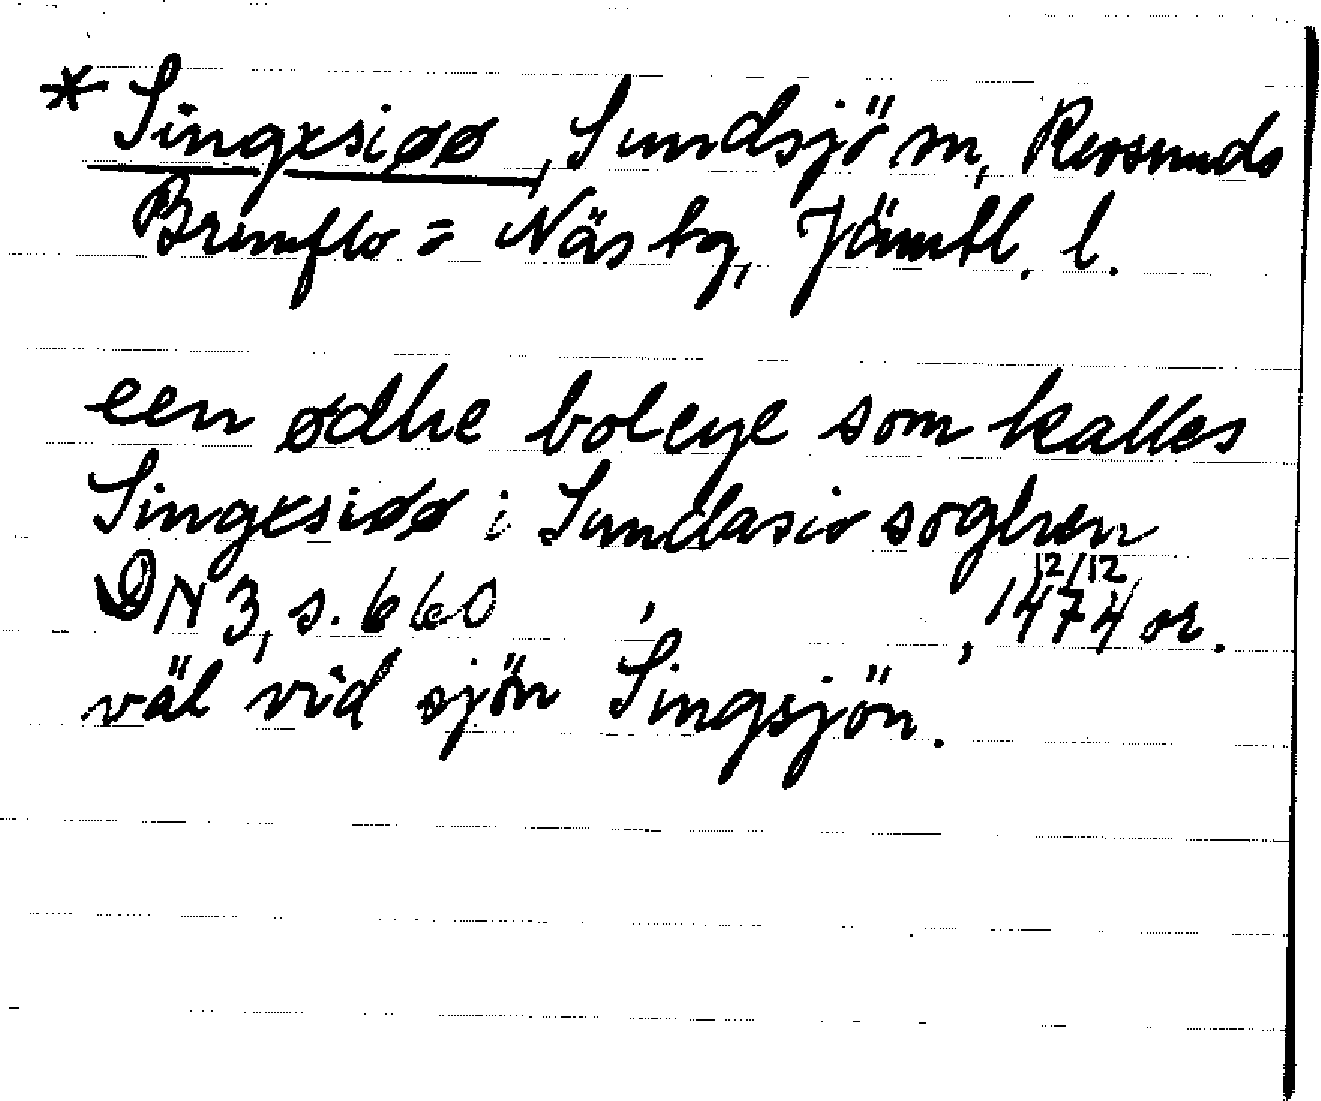 * Singxsiøø, Sundsjö sn, Revsunds
Brunflo = Näs tg, Jämtl. l.
een ødhe boleye som kalles
Singxsiøø i Sundasio soghen
DN 3, s. 660, 12/12 1474 or.
väl vid sjön Singsjön.